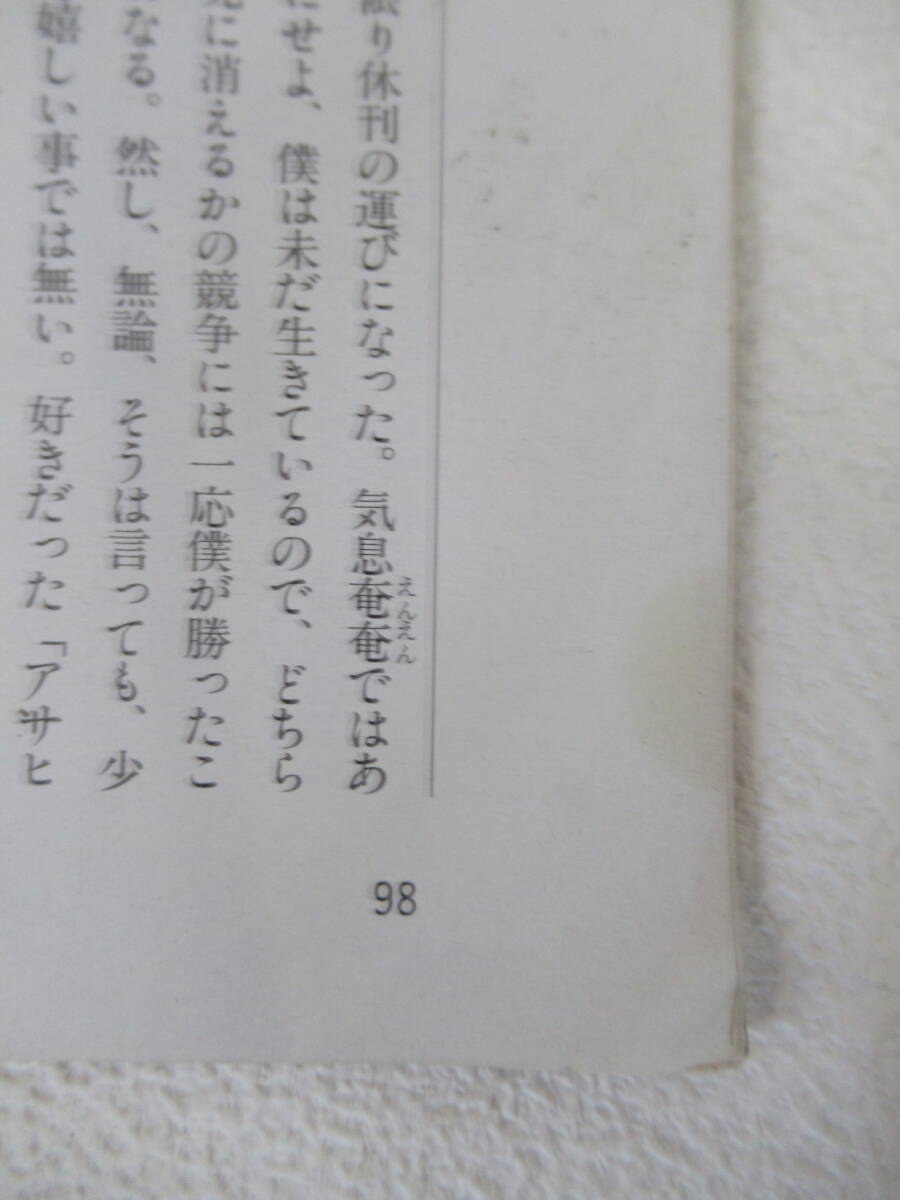 限り休刊の運びになった。気息奄奄ではあ
えんえん
にせよ、僕は未だ生きているので、どちら
に消えるかの競争には一応僕が勝ったこ
なる。然し、無論、そうは言っても、少
嬉しい事では無い。好きだった「アサヒ
98